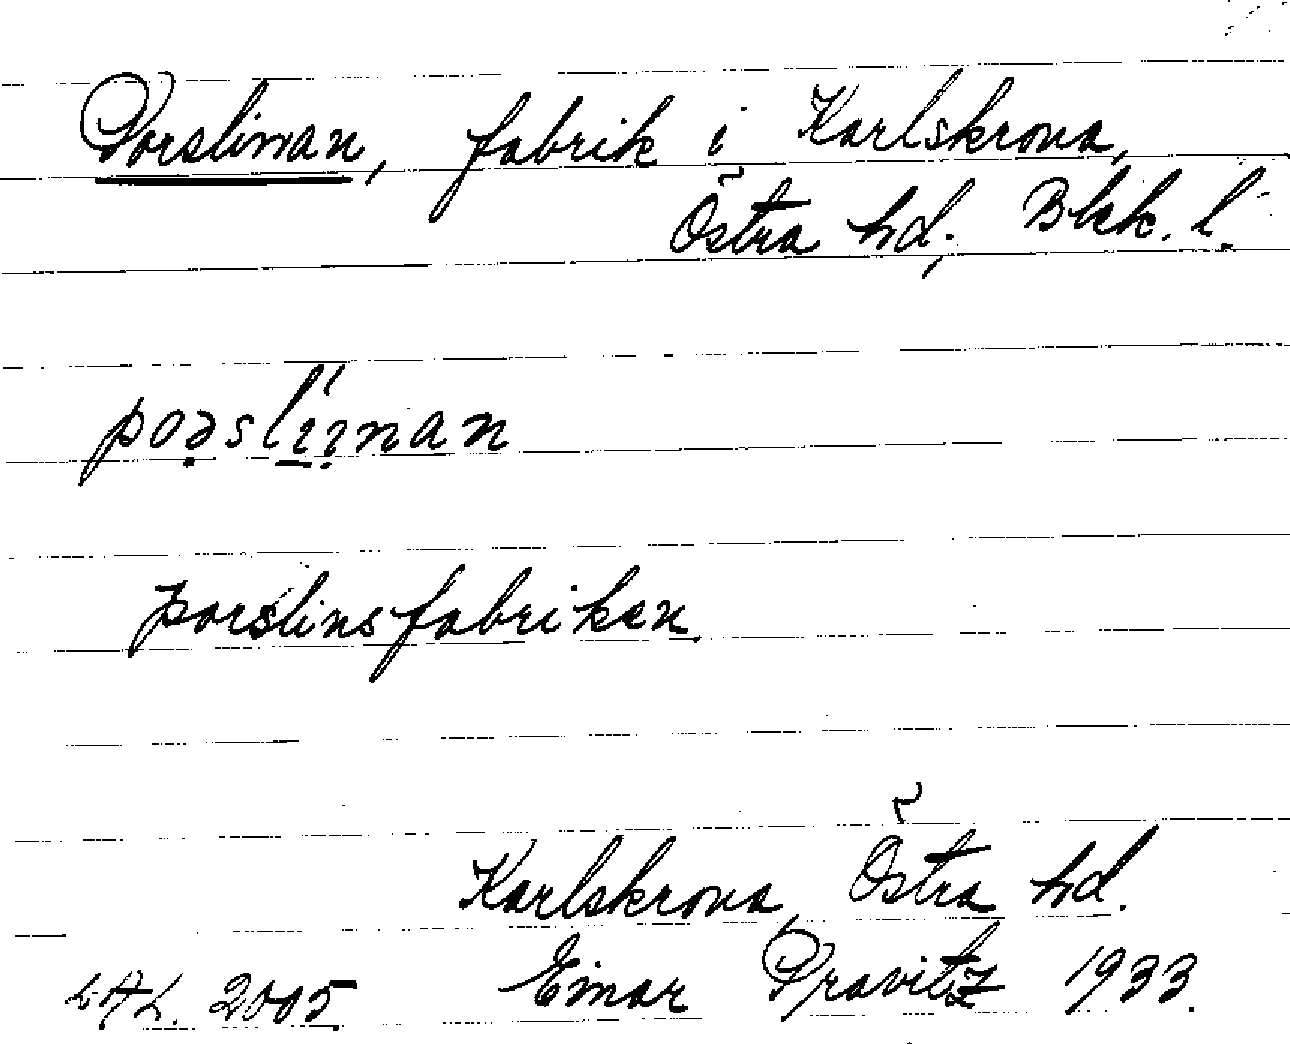 Porslinan, fabrik i Karlskrona,
Östra hd, Blek. l.
porslinsfabriken.
Karlskrona, Östra hd.
Einar Pravitz 1933.
2005